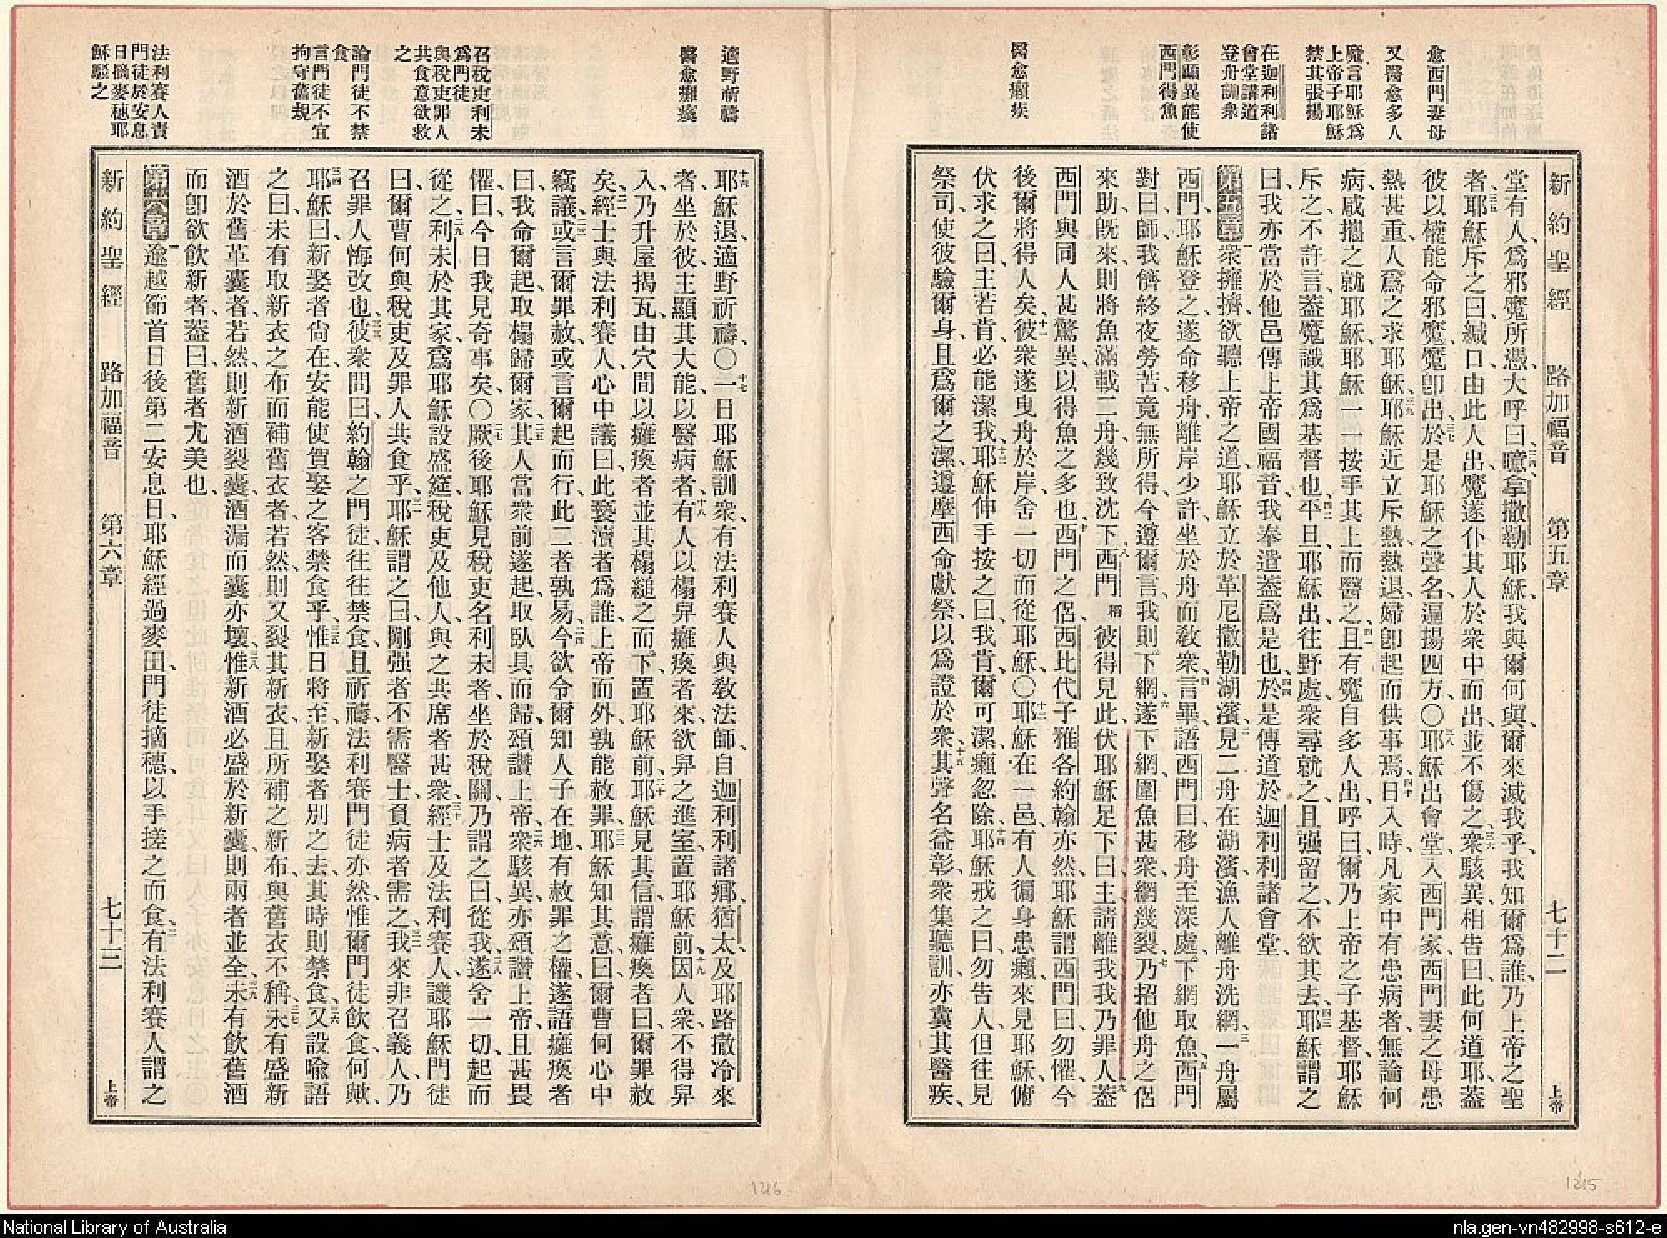 愈西門妻母
又醫愈多人
魔言耶穌爲
上帝子耶穌
禁其張揚
在迦利利諸
會堂講道
登舟訓衆
彰顯異能使
西門得魚
醫愈癩疾
新約聖經 路加福音 第五章 七十二 上帝
堂有人、爲邪魔所憑、大呼曰、噫、拿撒勒耶穌、我與爾何與、爾來滅我乎、我知爾爲誰、乃上帝之聖
者、耶穌斥之曰、緘口、由此人出、魔遂仆其人於衆中而出、並不傷之、衆駭異相告曰、此何道耶、蓋
彼以權能命邪魔、魔卽出、於是耶穌之聲名、遍揚四方、○耶穌出會堂、入西門家、西門妻之母患
熱甚重、人爲之求耶穌、耶穌近立斥熱、熱退、婦卽起而供事焉、日入時、凡家中有患病者、無論何
病、咸攜之就耶穌、耶穌一一按手其上而醫之、且有魔自多人出、呼曰、爾乃上帝之子基督、耶穌
斥之、不許言、蓋魔識其爲基督也、平旦、耶穌出、往野處、衆尋就之、且强留之、不欲其去、耶穌謂之
曰、我亦當於他邑傳上帝國福音、我奉遣蓋爲是也、於是傳道於迦利利諸會堂、
第五章 衆擁擠欲聽上帝之道、耶穌立於革尼撒勒湖濱、見二舟在湖濱、漁人離舟洗網、一舟屬
西門、耶穌登之、遂命移舟離岸少許、坐於舟而教衆、言畢、語西門曰、移舟至深處、下網取魚、西門
對曰、師、我儕終夜勞苦、竟無所得、今遵爾言、我則下網、遂下網、圍魚甚衆、網幾裂、乃招他舟之侶
來助、旣來、則將魚滿載二舟、幾致沈下、西門稱彼得見此、伏耶穌足下曰、主、請離我、我乃罪人、蓋
西門與同人甚驚異、以得魚之多也、西門之侶西比代子雅各約翰亦然、耶穌謂西門曰、勿懼、今
後爾將得人矣、彼衆遂曳舟於岸、舍一切而從耶穌、○耶穌在一邑、有人徧身患癩、來見耶穌、俯
伏求之曰、主若肯、必能潔我、耶穌伸手按之曰、我肯、爾可潔、癩忽除、耶穌戒之曰、勿告人、但往見
祭司、使彼驗爾身、且爲爾之潔、遵摩西命獻祭、以爲證於衆、其聲名益彰、衆集聽訓、亦冀其醫疾、
適野祈禱
醫愈癱瘓
召稅吏利未
爲門徒
與稅吏罪人
共食意欲救
之
論門徒不禁
食
言門徒不宜
拘守舊規
法利賽人責
門徒於安息
日摘麥穗耶
穌駁之
耶穌退、適野祈禱、○一日、耶穌訓衆、有法利賽人與教法師、自迦利利諸鄕、猶太及耶路撒冷來
者、坐於彼、主顯其大能以醫病者、有人以榻舁癱瘓者來、欲舁之進室、置耶穌前、因人衆不得舁
入、乃升屋揭瓦、由穴間以癱瘓者並其榻縋之而下、置耶穌前、耶穌見其信、謂癱瘓者曰、爾罪赦
矣、經士與法利賽人心中議曰、此褻瀆者爲誰、上帝而外、孰能赦罪、耶穌知其意、曰、爾曹何心中
竊議、或言爾罪赦、或言爾起而行、此二者孰易、今欲令爾知人子在地有赦罪之權、遂語癱瘓者
曰、我命爾起、取榻歸爾家、其人當衆前遂起、取臥具而歸、頌讚上帝、衆駭異、亦頌讚上帝、且甚畏
懼、曰、今日我見奇事矣、○厥後耶穌見稅吏名利未者、坐於稅關、乃謂之曰、從我、遂舍一切、起而
從之、利未於其家、爲耶穌設盛筵、稅吏及他人、與之共席者甚衆、經士及法利賽人、譏耶穌門徒
曰、爾曹何與稅吏及罪人共食乎、耶穌謂之曰、剛强者不需醫士、負病者需之、我來非召義人、乃
召罪人悔改也、彼衆問曰、約翰之門徒、往往禁食、且祈禱、法利賽門徒亦然、惟爾門徒飲食何歟、
耶穌曰、新娶者尙在、安能使賀娶之客禁食乎、惟日將至、新娶者別之去、其時則禁食、又設喩語
之曰、未有取新衣之布而補舊衣者、若然、則又裂其新衣、且所補之新布、與舊衣不稱、未有盛新
酒於舊革囊者、若然、則新酒裂囊、酒漏而囊亦壞、惟新酒必盛於新囊、則兩者並全、未有飲舊酒
而卽欲飲新者、蓋曰、舊者尤美也、
第六章 逾越節首日後第二安息日、耶穌經過麥田、門徒摘穗、以手搓之而食、有法利賽人謂之
新約聖經 路加福音 第六章 七十三 上帝
1216
1215
National Library of Australia
nla.gen-vn482998-s612-e